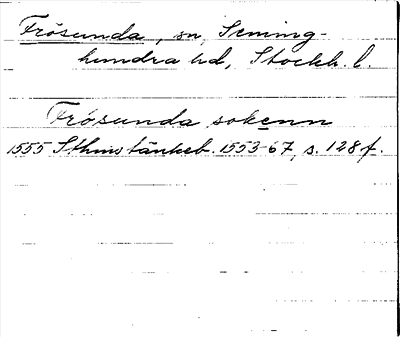 Frösunda, sn, Seming-
hundra hd, Stockh. l.
Frösunda sokenn
1555 Sthms tänkeb. 1553-67, s. 128 f.